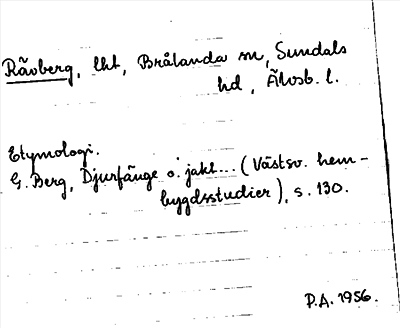 Rävberg, lht, Brålanda sn, Sundals
hd, Älvsb. l.
Etymologi.
G. Berg, Djurfänge o. jakt... (Västsv. hem-
bygdsstudier), s. 130.
P.A. 1956.